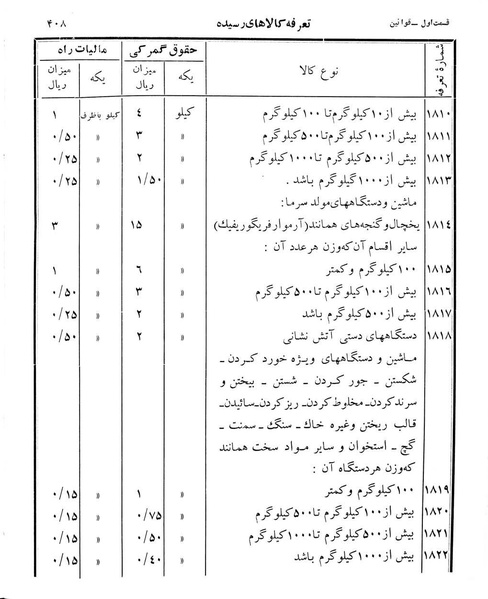 قسمت اول ــ قوانین تعرفه کالاهای رسیده ۴۰۸
شمارهٔ تعرفه نوع کالا حقوق گمرکی مالیات راه
یکه میزان ریال یکه میزان ریال
۱۸۱۰ بیش از ۱۰ کیلوگرم تا ۱۰۰ کیلوگرم کیلو ۴ کیلو باظرف ۱
۱۸۱۱ بیش از ۱۰۰ کیلوگرم تا ۵۰۰ کیلوگرم » ۳ » ۰/۵۰
۱۸۱۲ بیش از ۵۰۰ کیلوگرم تا ۱۰۰۰ کیلوگرم » ۲ » ۰/۲۵
۱۸۱۳ بیش از ۱۰۰۰ کیلوگرم باشد . » ۱/۵۰ » ۰/۲۵
ماشین و دستگاههای مولد سرما:
۱۸۱۴ یخچال و گنجه‌های همانند (آرموار فریگوریفیك) » ۱۵ » ۳
سایر اقسام آن که وزن هر عدد آن :
۱۸۱۵ ۱۰۰ کیلوگرم و کمتر » ۶ » ۱
۱۸۱۶ بیش از ۱۰۰ کیلوگرم تا ۵۰۰ کیلوگرم » ۳ » ۰/۵۰
۱۸۱۷ بیش از ۵۰۰ کیلوگرم باشد » ۲ » ۰/۲۵
۱۸۱۸ دستگاههای دستی آتش نشانی » ۲ » ۰/۵۰
ماشین و دستگاههای ویژه خورد کردن ـ
شکستن ـ جور کردن ـ شستن ـ بیختن و
سرند کردن ـ مخلوط کردن ـ ریز کردن ـ سائیدن ـ
قالب ریختن وغیره خاك ـ سنگ ـ سمنت ـ
گچ ـ استخوان و سایر مواد سخت همانند
که وزن هر دستگاه آن :
۱۸۱۹ ۱۰۰ کیلوگرم و کمتر » ۱ » ۰/۱۵
۱۸۲۰ بیش از ۱۰۰ کیلوگرم تا ۵۰۰ کیلوگرم » ۰/۷۵ » ۰/۱۵
۱۸۲۱ بیش از ۵۰۰ کیلوگرم تا ۱۰۰۰ کیلوگرم » ۰/۵۰ » ۰/۱۵
۱۸۲۲ بیش از ۱۰۰۰ کیلوگرم باشد » ۰/۴۰ » ۰/۱۵